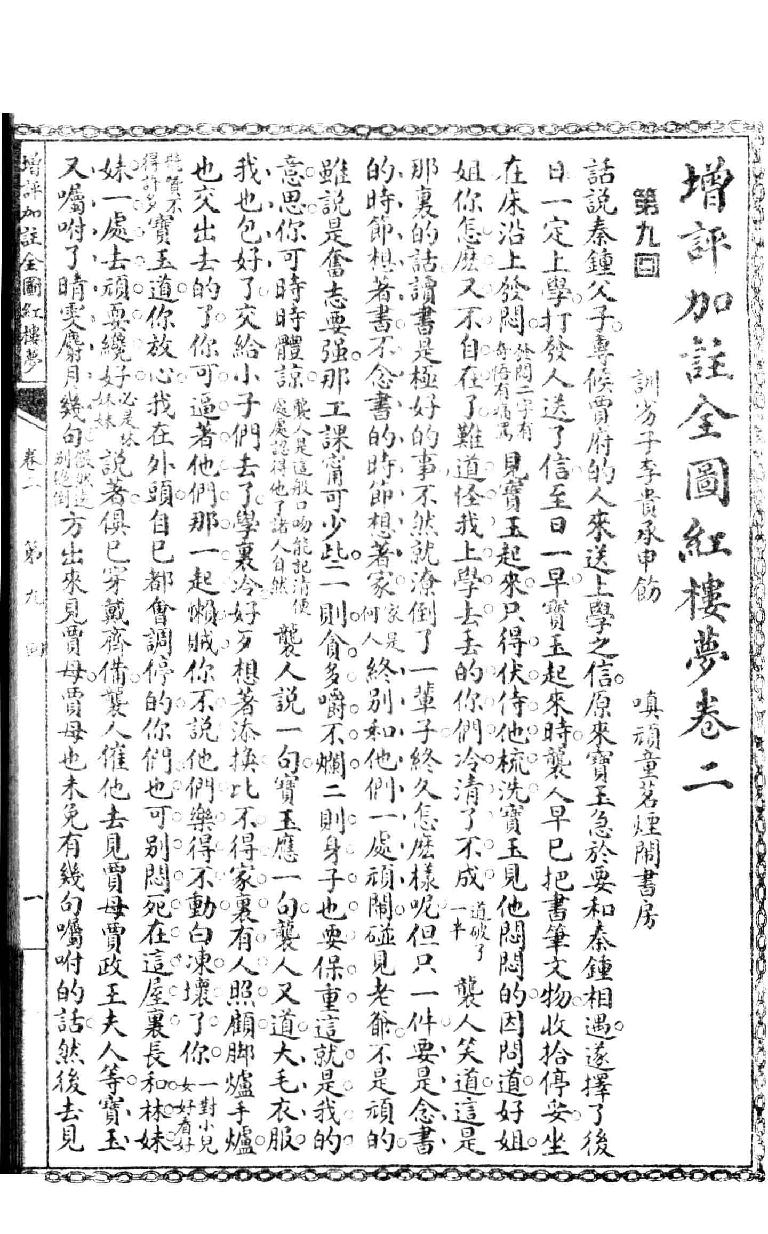 增評加註全圖紅樓夢卷二
第九回
訓劣子李貴承申飭　嗔頑童茗煙鬧書房
話說秦鍾父子專候賈府的人來送上學之信原來寶玉急於要和秦鍾相遇遂擇了後
日一定上學打發人送了信至日一早寶玉起來時襲人早已把書筆文物收拾停妥坐
在床沿上發悶發悶二字有奇悟有痛罵見寶玉起來只得伏侍他梳洗寶玉見他悶悶的因問道好姐
姐你怎麽又不自在了難道怪我上學去丟的你們冷清了不成道破了一半襲人笑道這是
那裏的話讀書是極好的事不然就潦倒了一輩子終久怎麽樣呢但只一件要是念書
的時節想著書不念書的時節想著家家是何人終別和他們一處頑鬧碰見老爺不是頑的
雖說是奮志要强那工課甯可少些一則貪多嚼不爛二則身子也要保重這就是我的
意思你可時時體諒襲人是這般口吻能記清便處處認得他了諸人自然襲人說一句寶玉應一句襲人又道大毛衣服
我也包好了交給小子們去了學裏冷好歹想著添換比不得家裏有人照顧脚爐手爐
也交出去的了你可逼著他們那一起懶賊你不說他們樂得不動白凍壞了你一對小兒女好看好
寶玉道你放心我在外頭自己都會調停的你們也可别悶死在這屋裏長和林妹
妹一處去頑耍纔好必是林妹妹說著俱已穿戴齊備襲人催他去見賈母賈政王夫人等寶玉
又囑咐了晴雯麝月幾句方出來見賈母賈母也未免有幾句囑咐的話然後去見
增評加註全圖紅樓夢
卷二
第九回
一